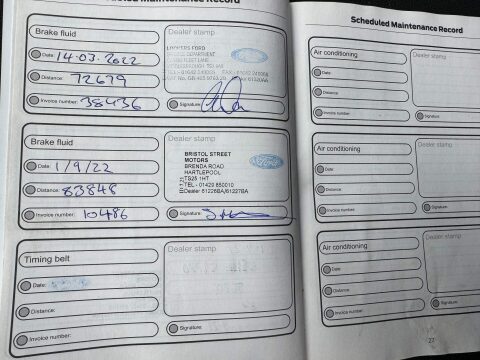 Scheduled Maintenance Record
Brake fluid
Date: 14-03-2022
Distance: 72679
Invoice number: 38436
Dealer stamp
FORD
SERVICE DEPARTMENT
Signature:
Brake fluid
Date: 1/9/22
Distance: 83848
Invoice number: 10486
Dealer stamp
BRISTOL STREET
MOTORS
BRENDA ROAD
HARTLEPOOL
TS25 1HT
TEL - 01429 850010
Dealer 61226BA/61227BA
Ford
Signature:
Timing belt
Date:
Distance:
Invoice number:
Dealer stamp
Signature:
Scheduled Maintenance Record
Air conditioning
Date:
Distance:
Invoice number:
Dealer stamp
Signature:
Air conditioning
Date:
Distance:
Invoice number:
Dealer stamp
Signature:
Air conditioning
Date:
Distance:
Invoice number:
Dealer stamp
Signature:
27